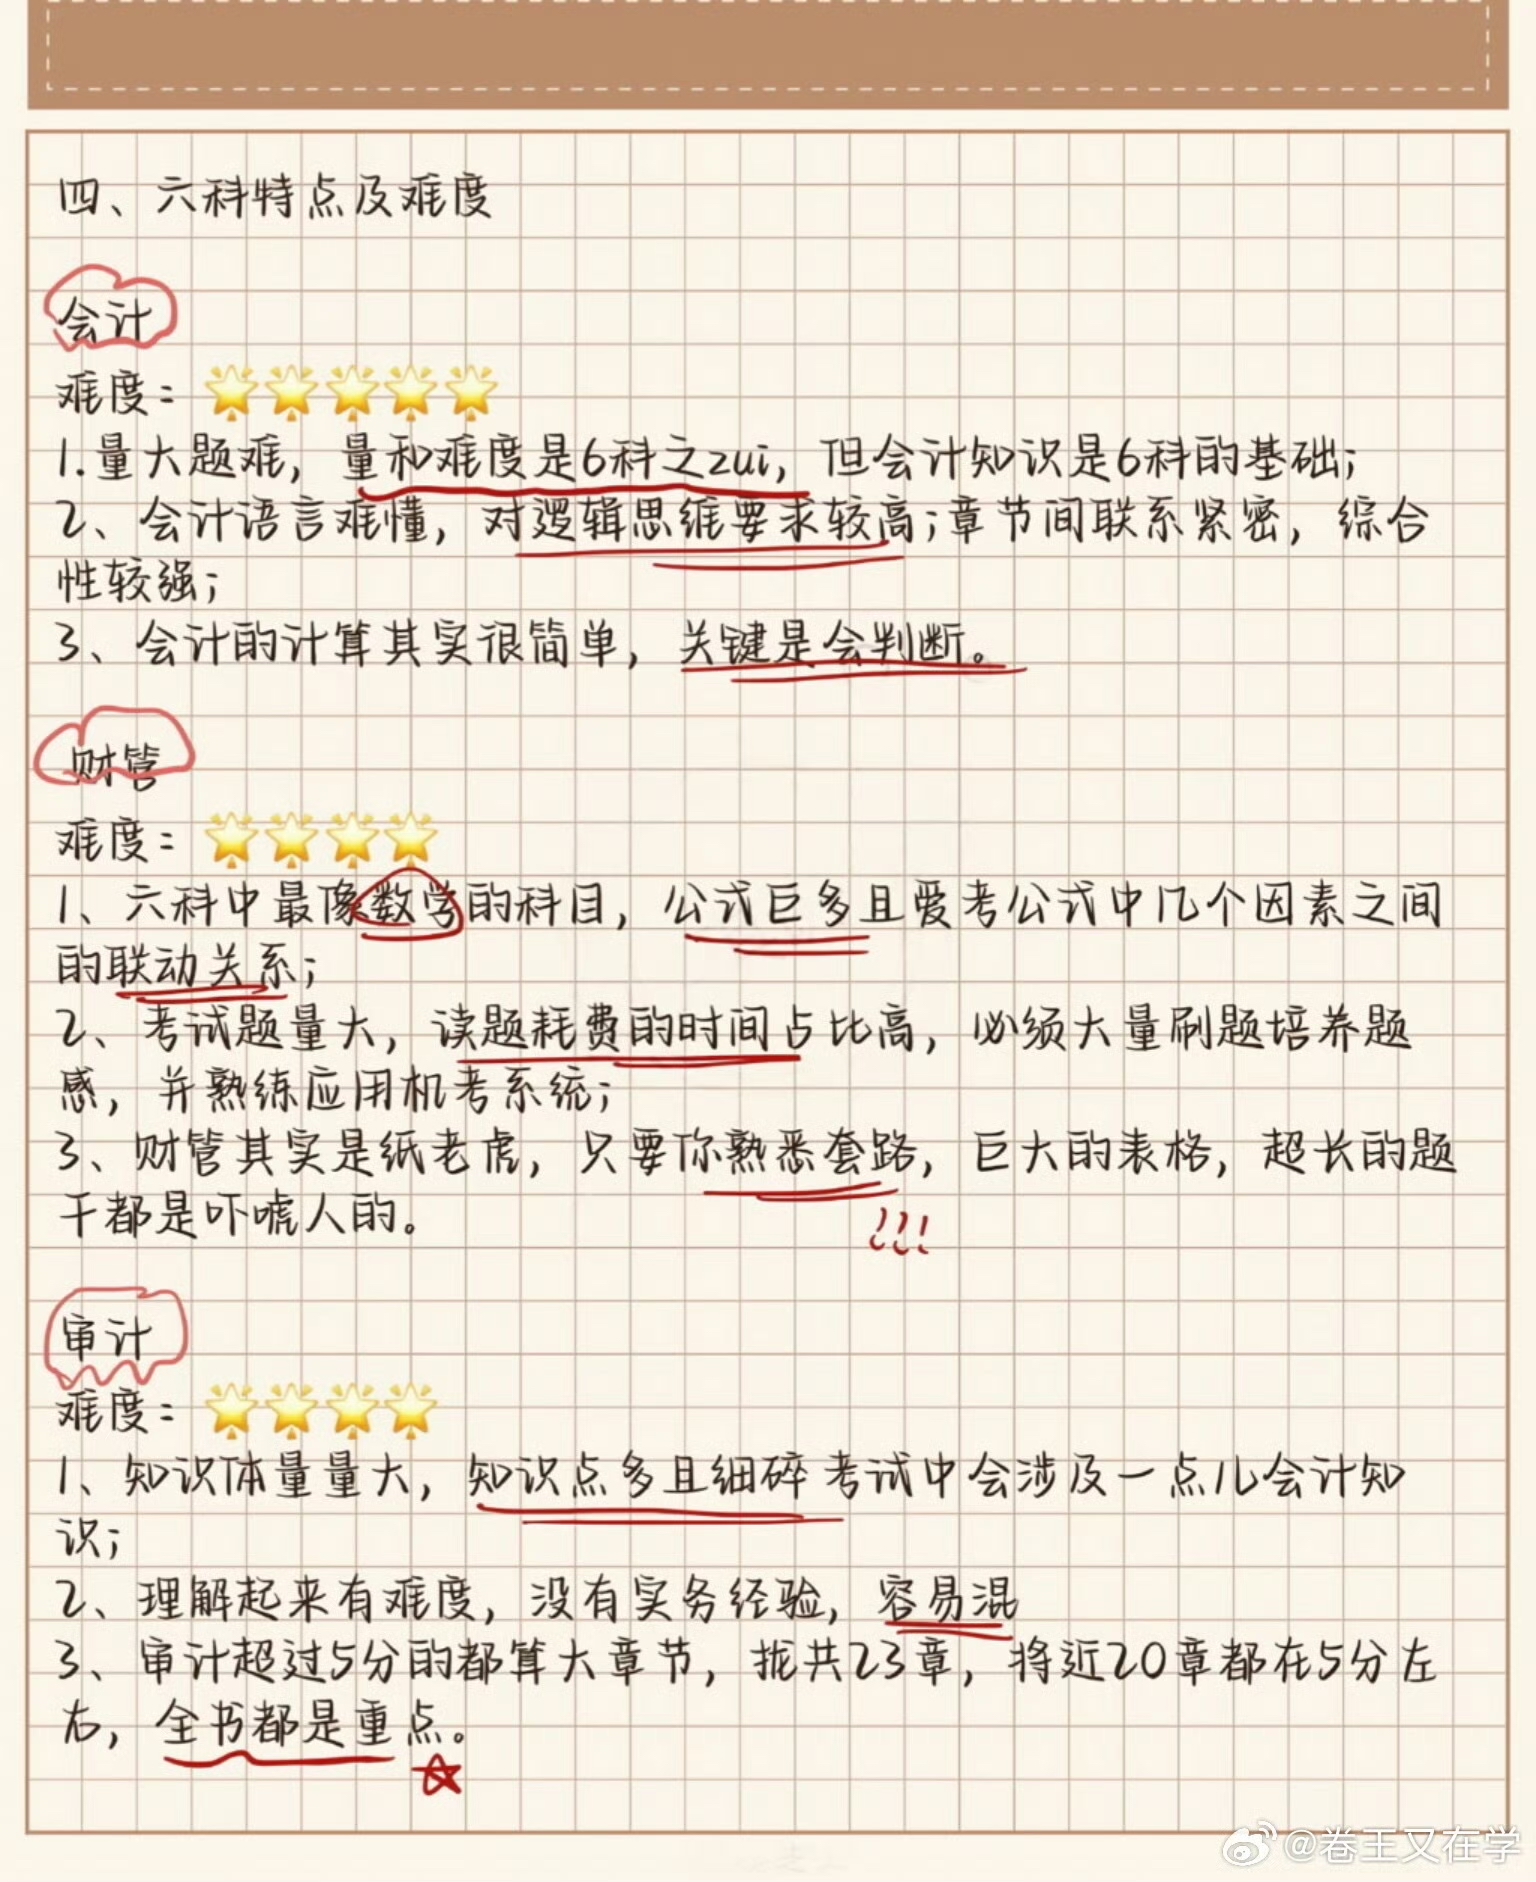 四、六科特点及难度
会计
难度：🌟🌟🌟🌟🌟
1.量大题难，量和难度是6科之zui，但会计知识是6科的基础；
2、会计语言难懂，对逻辑思维要求较高；章节间联系紧密，综合
性较强；
3、会计的计算其实很简单，关键是会判断。
财管
难度：🌟🌟🌟🌟
1、六科中最像数学的科目，公式巨多且爱考公式中几个因素之间
的联动关系；
2、考试题量大，读题耗费的时间占比高，必须大量刷题培养题
感，并熟练应用机考系统；
3、财管其实是纸老虎，只要你熟悉套路，巨大的表格，超长的题
干都是吓唬人的。
!!!
审计
难度：🌟🌟🌟🌟
1、知识体量量大，知识点多且细碎考试中会涉及一点儿会计知
识；
2、理解起来有难度，没有实务经验，容易混
3、审计超过5分的都算大章节，拢共23章，将近20章都在5分左
右，全书都是重点。
@卷王又在学